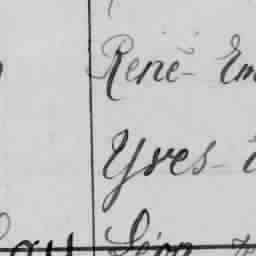 René- Em
Yves-
Léon